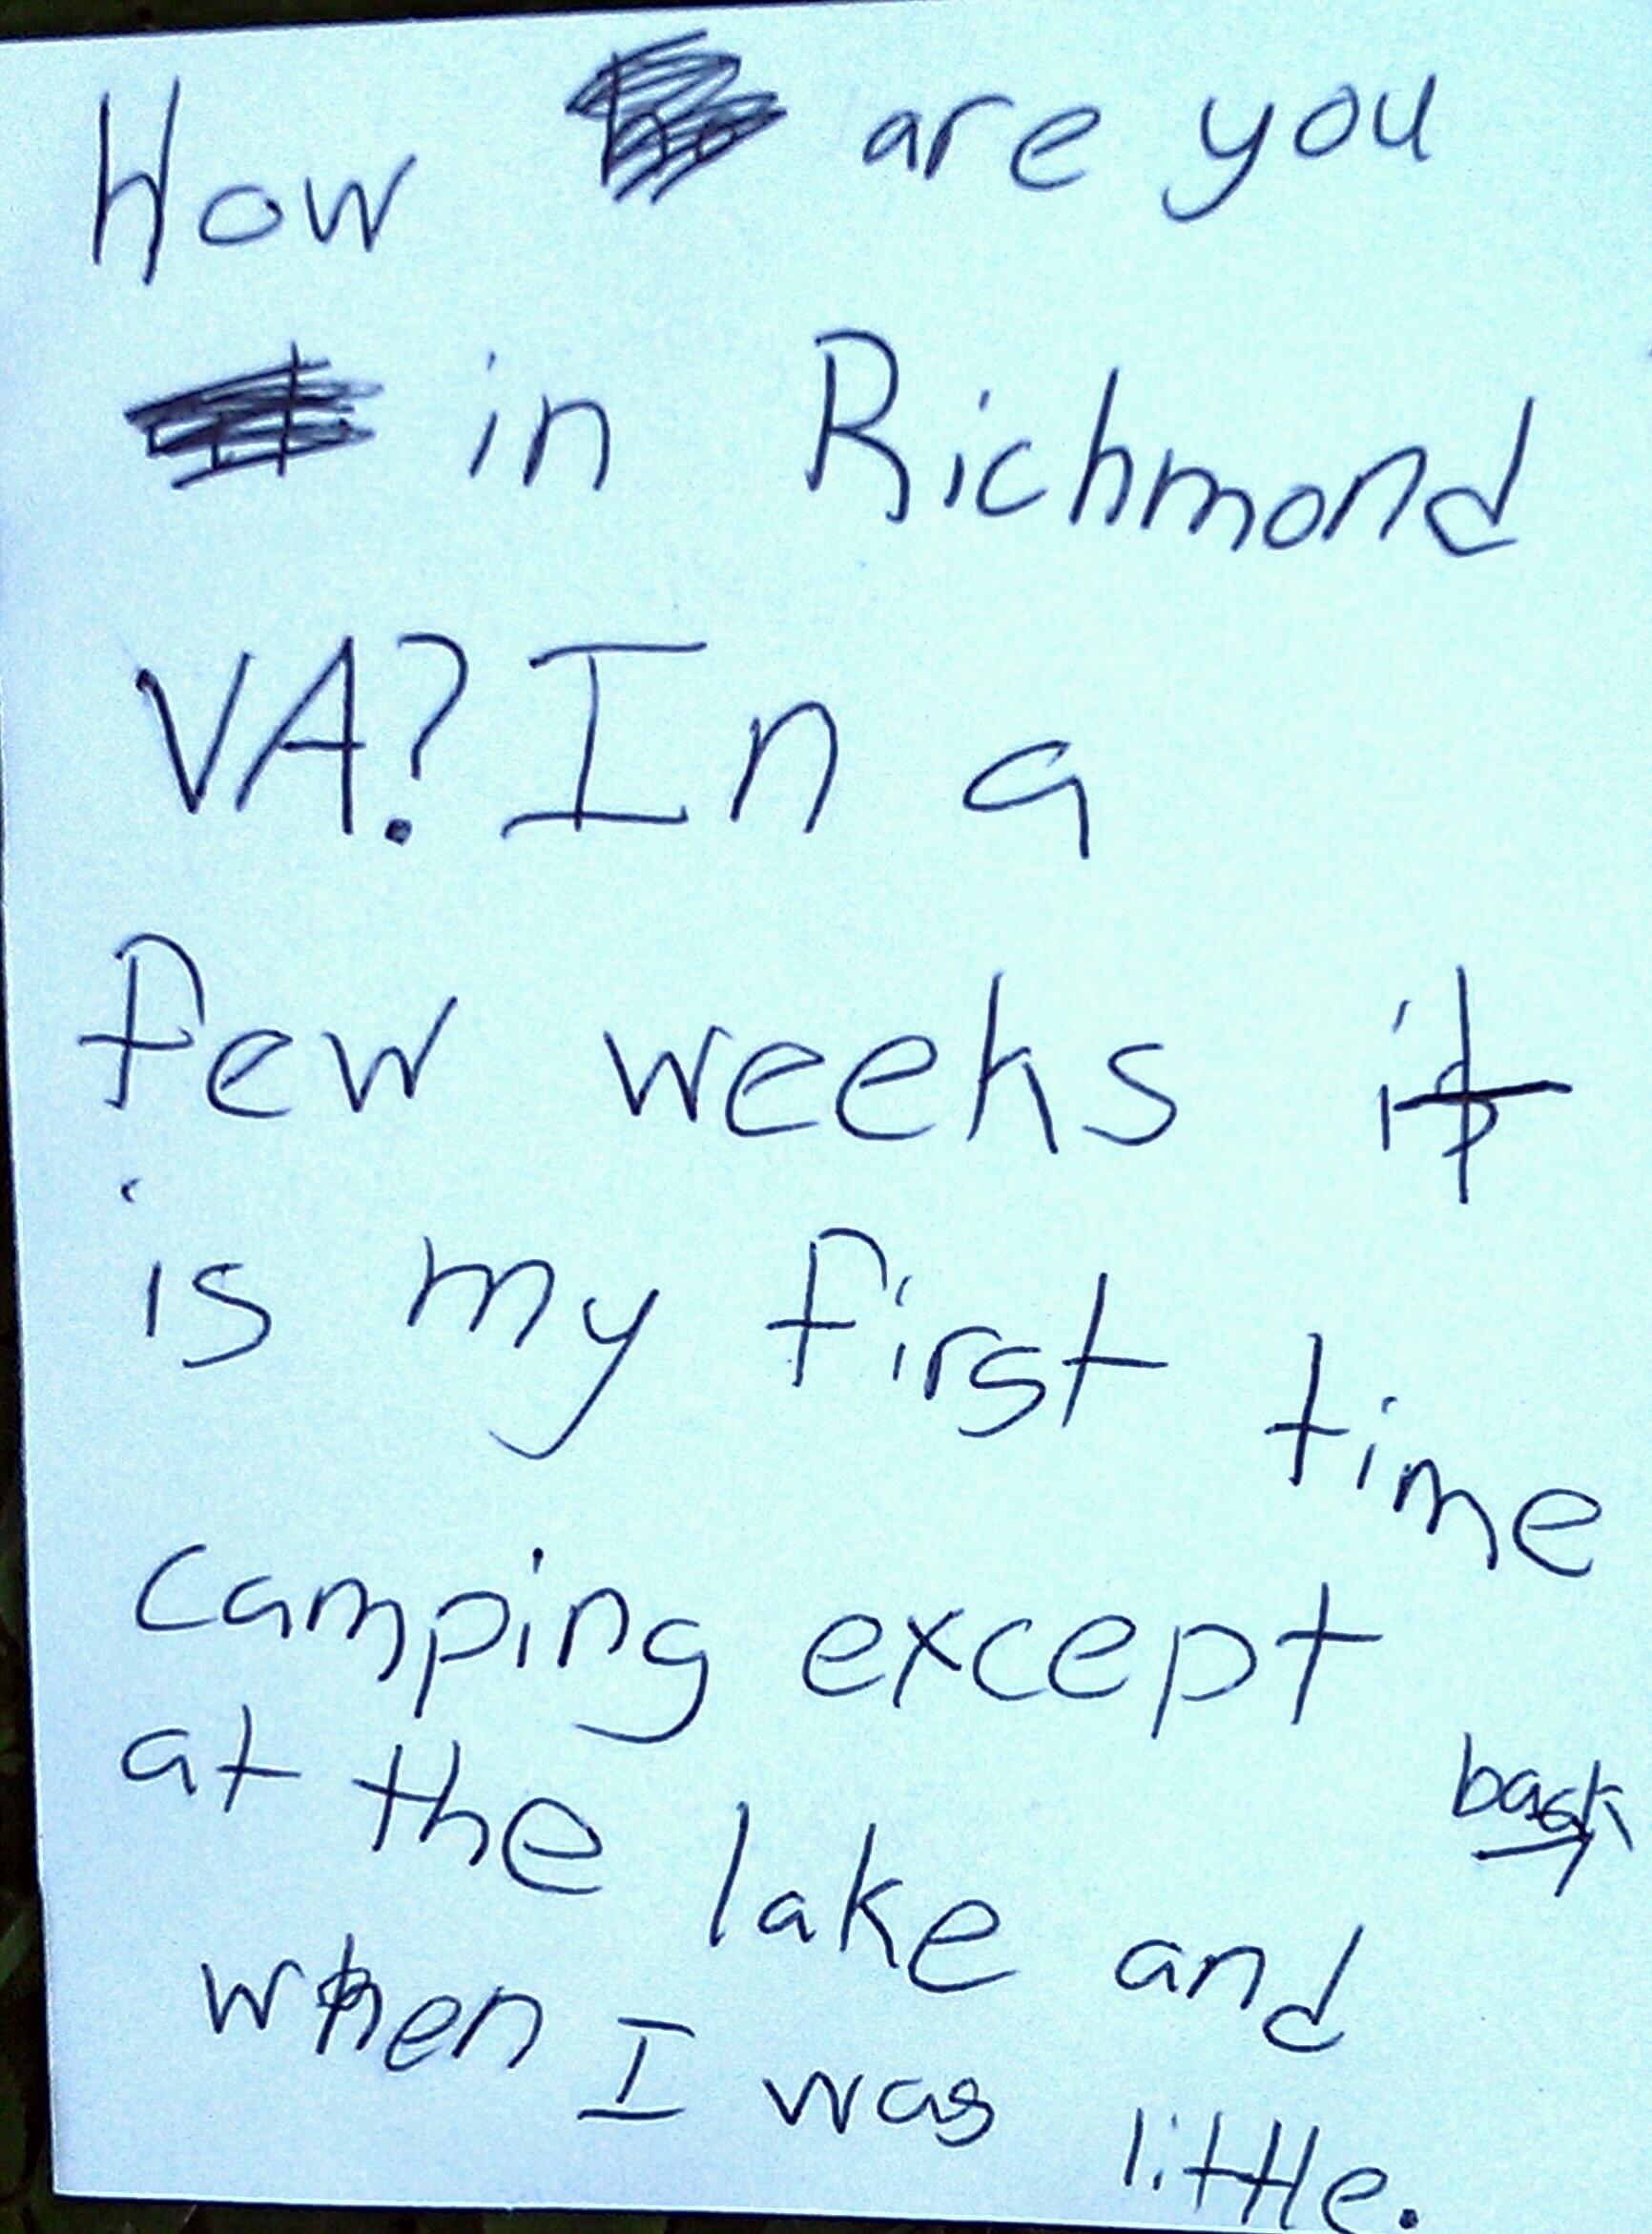 How are you
in Richmond
VA? In a
few weeks it
is my first time
camping except
at the lake and
back
when I was little.